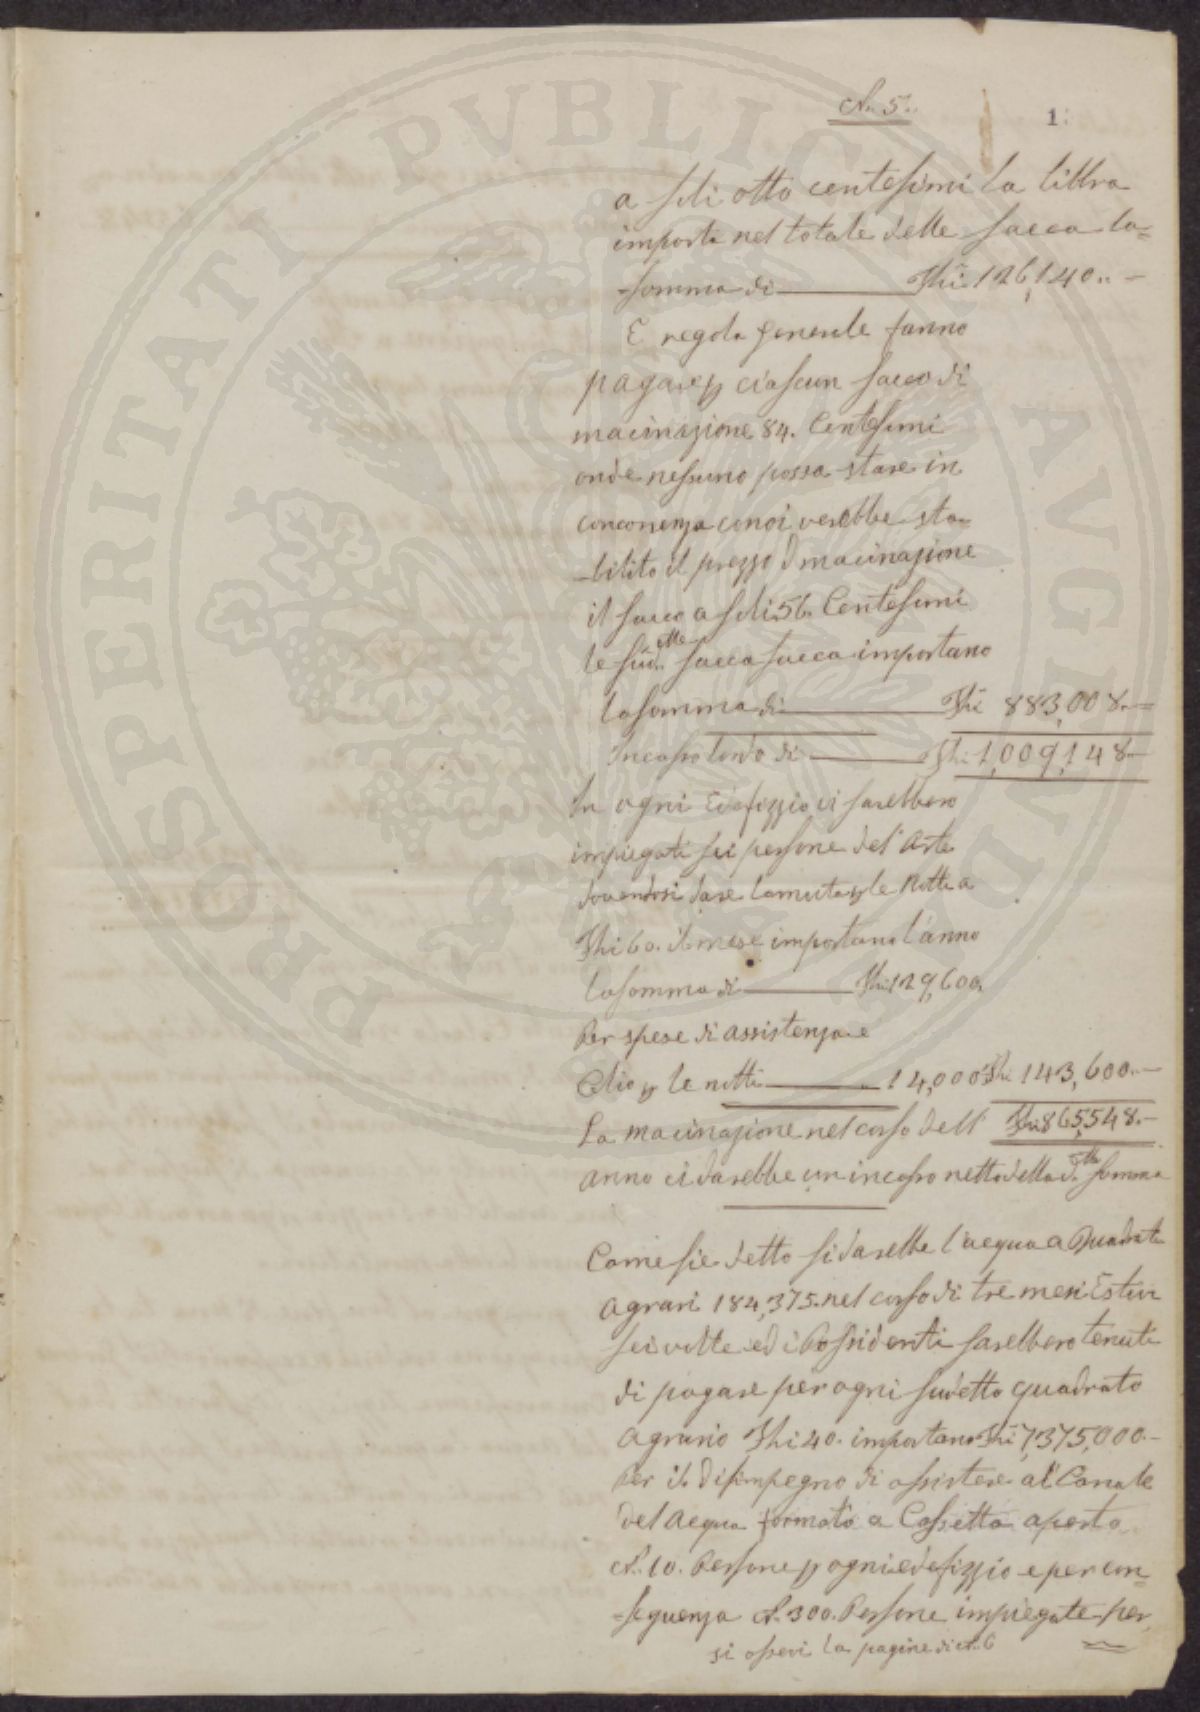 N. 5.
1.
a soli otto centesimi la libbra
importa nel totale delle sacca la=
=somma di Fhi 126,140.. —
E regola generale fanno
pagare p ciascun sacco di
macinazione 84. Centesimi
onde nessuno possa stare in
conconenza con oi verebbe sta=
=bilito il prezzo d macinazione
il sacco a soli 56. Centesimi
le sud.tte sacca sacca importano
la somma di Fhi 883,008.. —
Incasso lordo di Fhi 1,009,148 —
In ogni Edefizzio ci sarebbero
impiegati sei persone del' Arte
dovendosi dare la muta p le Notti a
Fhi 60. il mese importano l'anno
la somma di Fhi 129,600.
Per spese di assistenza e
Olio p le notti 14,000 Fhi 143,600.. —
La macinazione nel corso dell' Fhi 865,548. —
anno ci darebbe un incasso netto della d.tta somma
Come si e detto si darebbe l'acqua a Quadrati
Agrari 184,375. nel corso di tre mesi Estivi
sei volte ed i Possidenti sarebbero tenuti
di pagare per ogni sudetto quadrato
Agrario Fhi 40. importano Fhi 7,375,000. —
Per il disimpegno di assistere al Canale
del Acqua formato a Cassetta aperta
N. 10. Persone p ogni edefizzio e per con=
=seguenza N. 300. Persone impiegate per
si osservi la pagine di N. 6
PROSPERITATI PVBLICAE AVGENDAE